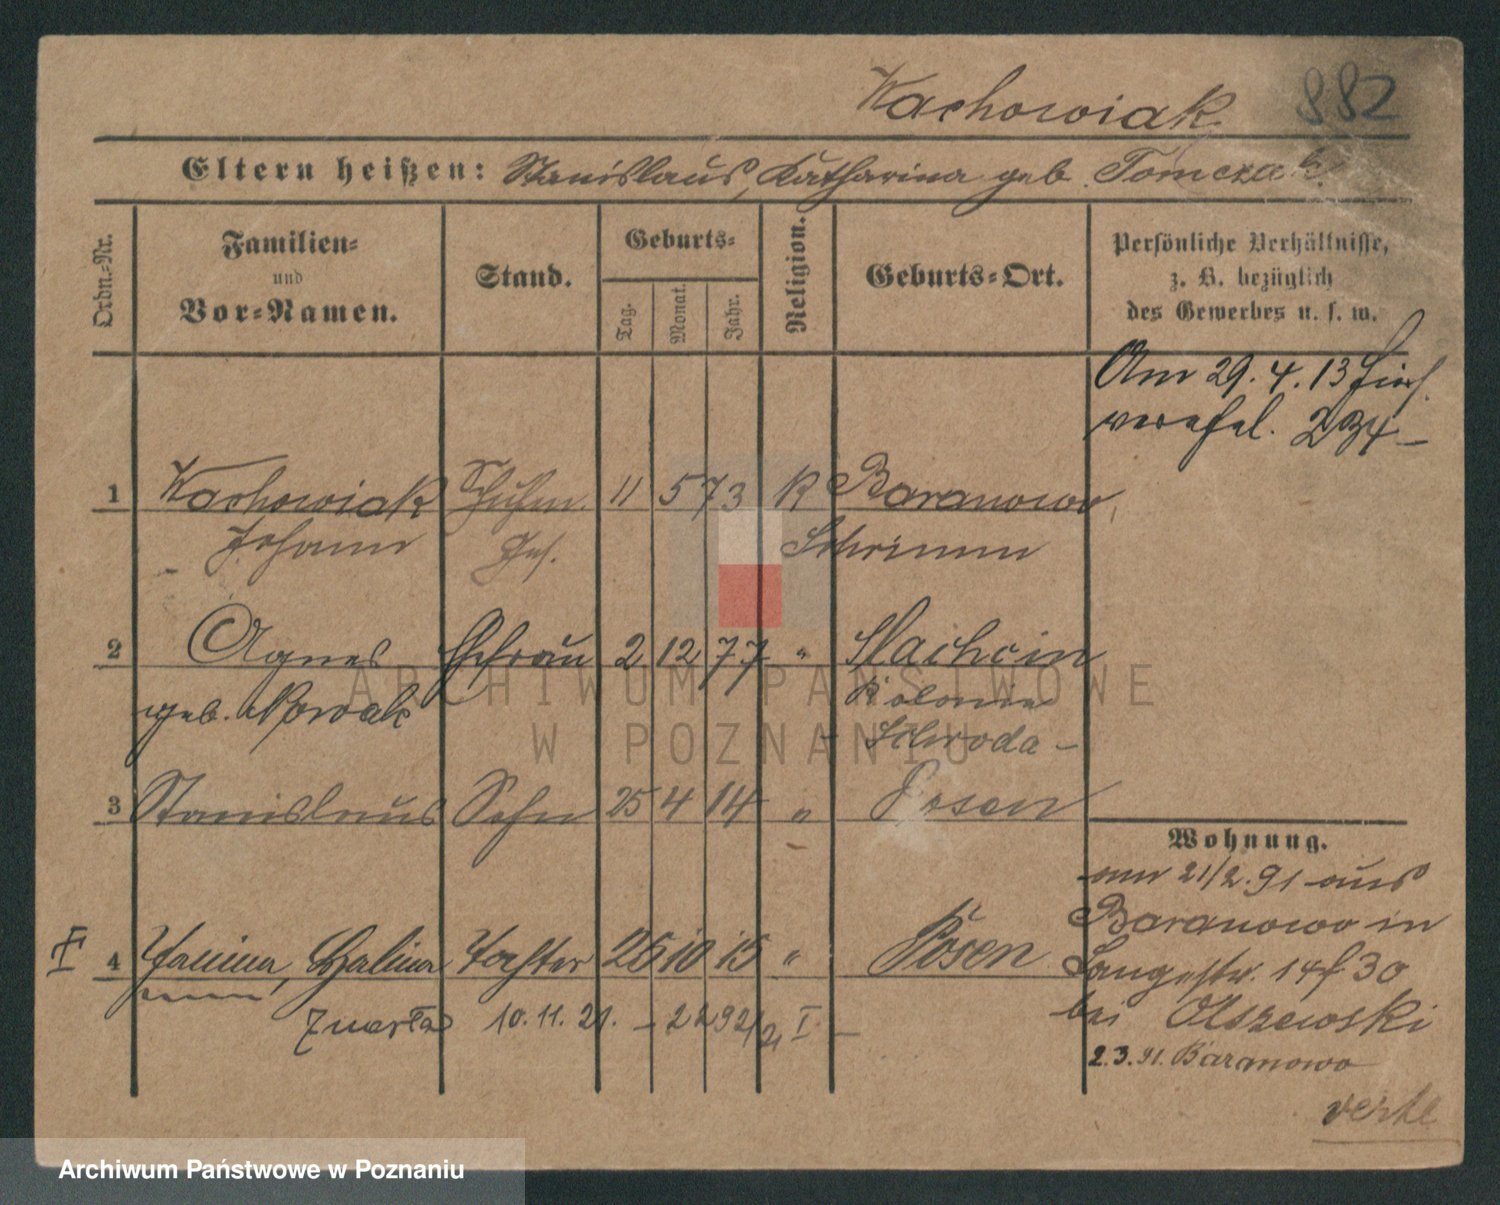 Wachowiak 882
Eltern heißen: Stanislaus, Katharina geb. Tomczak.
Ordn.-Nr.
Familien-
und
Vor-Namen.
Stand.
Geburts-
Tag.
Monat.
Jahr.
Religion.
Geburts-Ort.
Persönliche Verhältnisse,
z. B. bezüglich
des Gewerbes u. s. w.
Am 29.4.13
234
1 Wachowiak 11 5 73 K Baranowo,
Johann Schrimm
2 Agnes Ehefrau 2 12 77 " Slachcin
geb. Nowak Kolonie
Schroda -
3 Stanislaus Sohn 25 4 14 " Posen
Wohnung.
am 21/2.91 aus
Baranowo in
I 4 Janina, Halina Tochter 26 10 15 " Posen
Langestr. 14 30
zmarła 10.11.21. - I -
bei Olszewski
2.3.91. Baranowo
verte
ARCHIWUM PAŃSTWOWE
W POZNANIU
Archiwum Państwowe w Poznaniu